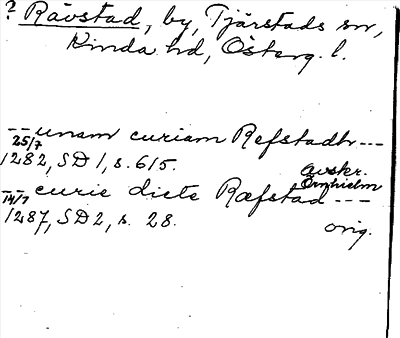 ? Rävstad, by, Tjärstads sn,
Kinda hd, Österg. l.
-- unam curiam Refstadhr ---
25/7
1282, SD 1, s. 615. avskr.
Örnhielm
-- curie dicte Ræfstad ---
14/7
1287, SD 2, s. 28. orig.